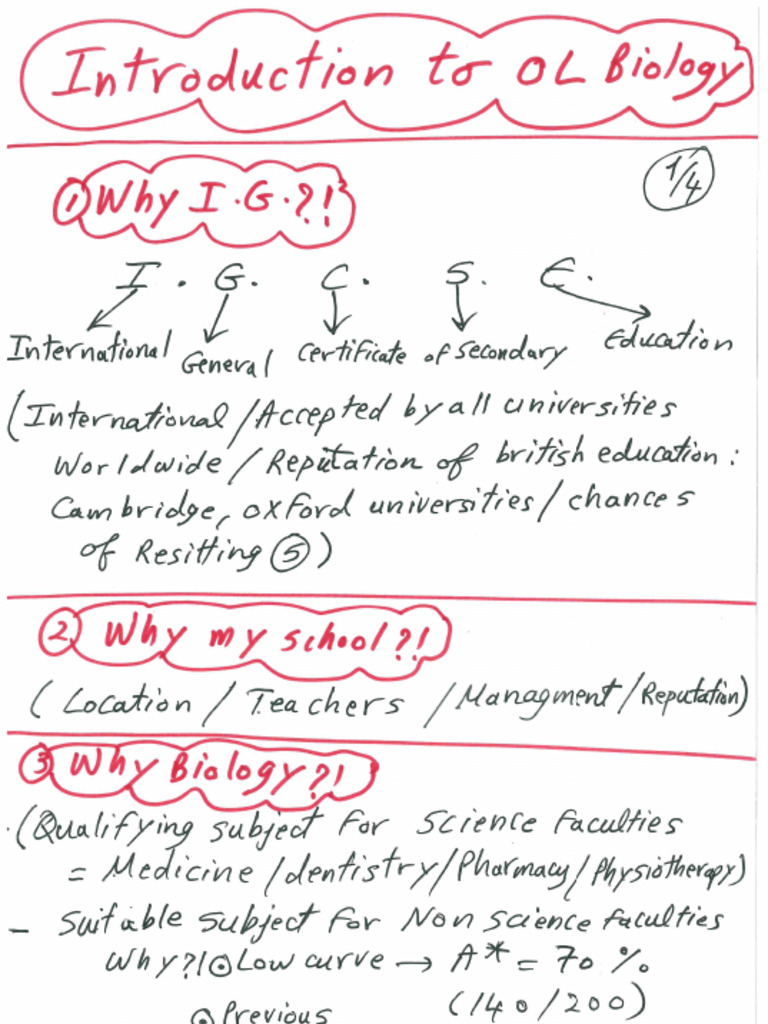 Introduction to OL Biology
① Why I.G.?!
1/4
I. G. C. S. E.
International General Certificate of Secondary Education
(International/Accepted by all universities
Worldwide/Reputation of british education:
Cambridge, oxford universities/chances
of Resitting ⑤)
② Why my school?!
(Location/Teachers/Managment/Reputation)
③ Why Biology?!
(Qualifying subject for Science faculties
= Medicine/dentistry/Pharmacy/Physiotherapy)
- Suitable subject for Non science faculties
Why?! ⊙ Low curve → A* = 70 %
(140/200)
⊙ Previous